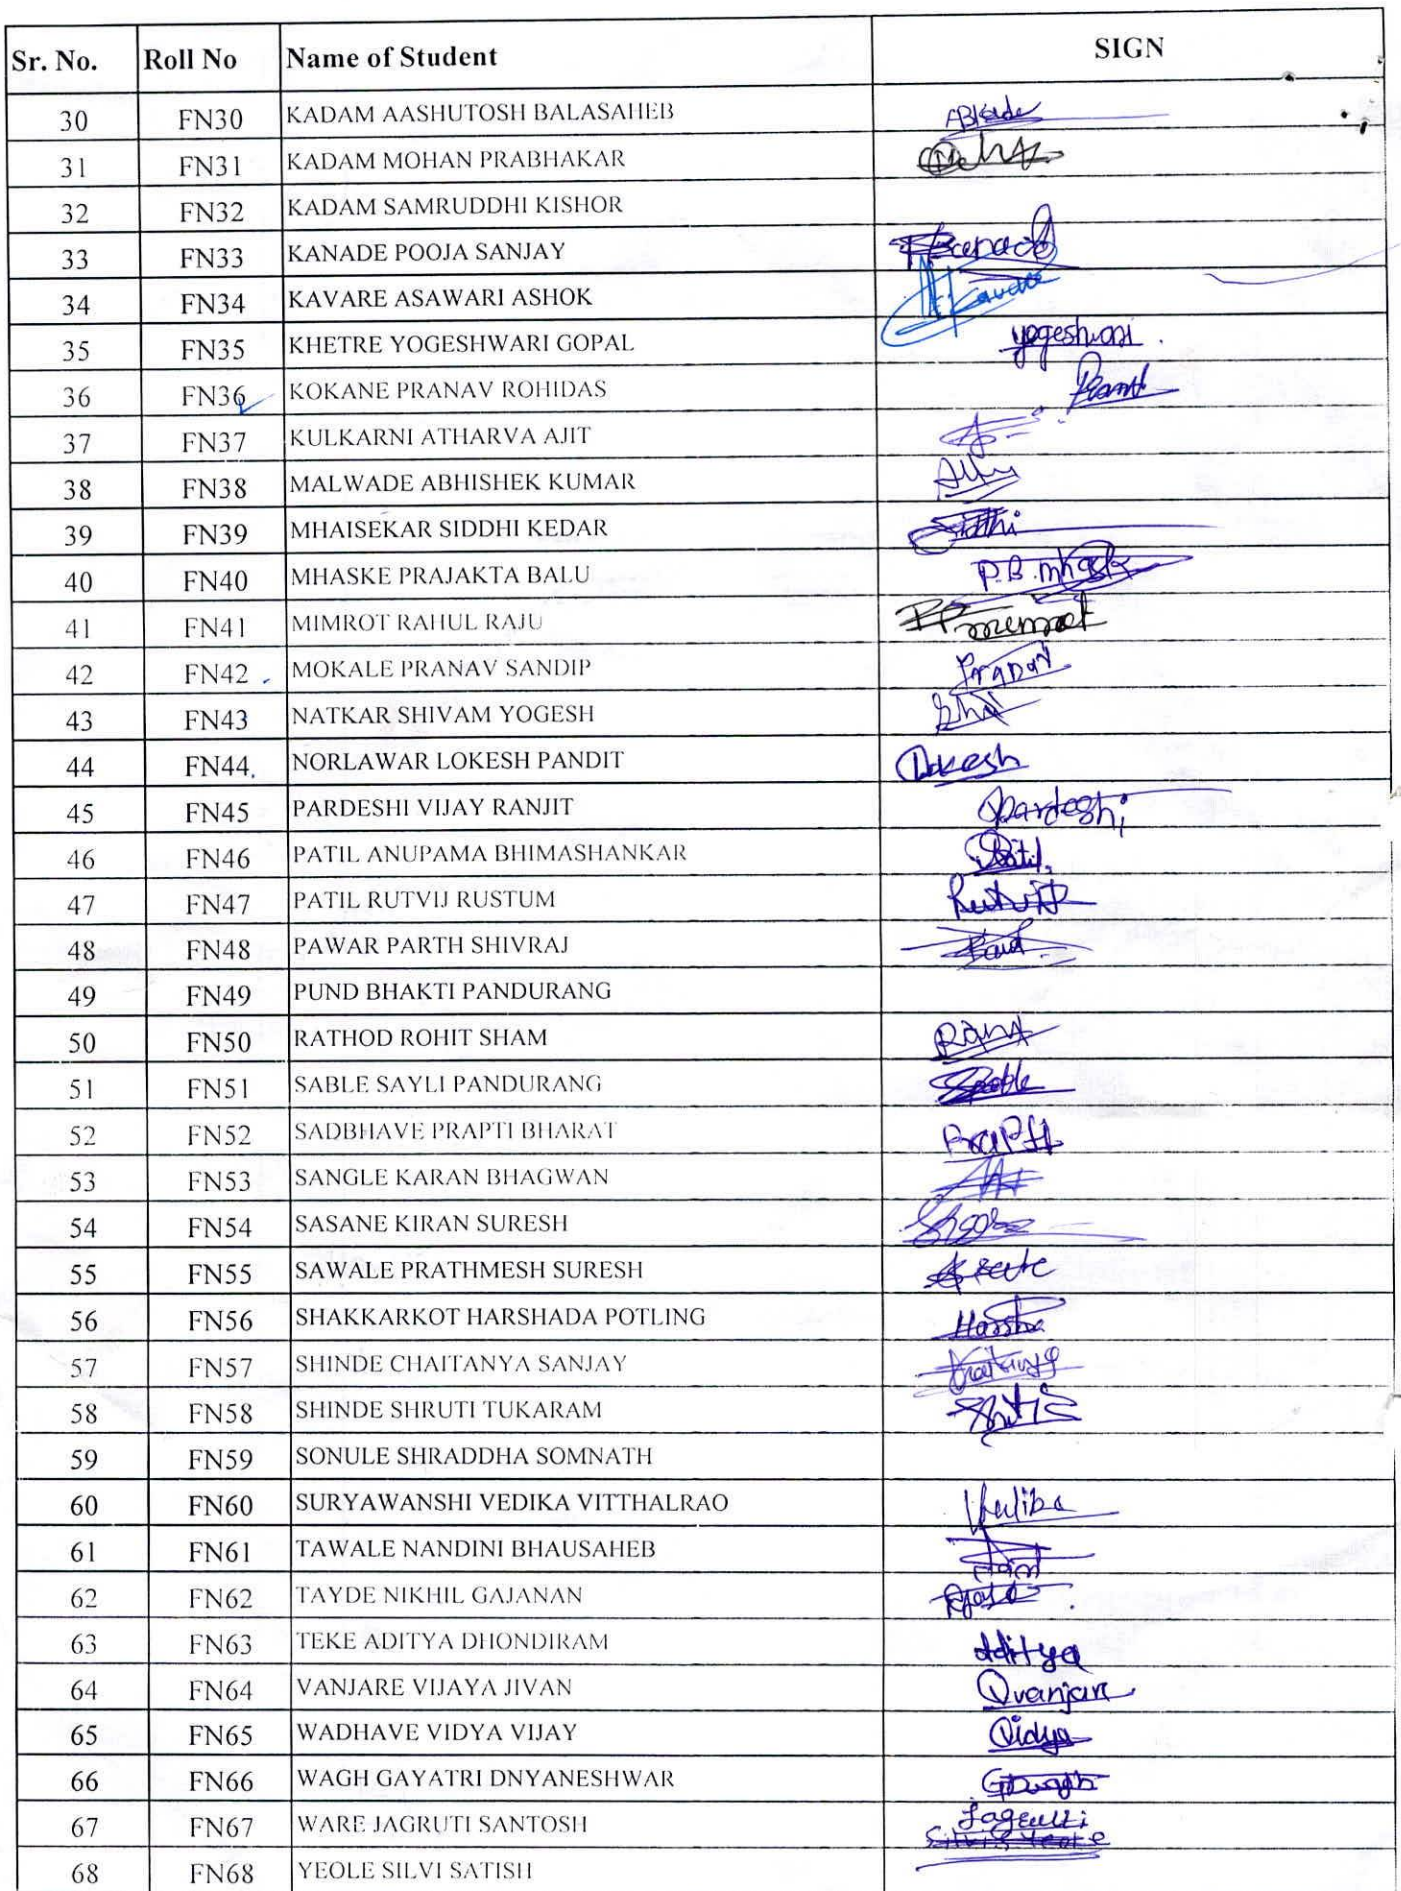 Sr. No. Roll No Name of Student SIGN
30 FN30 KADAM AASHUTOSH BALASAHEB ABKade
31 FN31 KADAM MOHAN PRABHAKAR
32 FN32 KADAM SAMRUDDHI KISHOR
33 FN33 KANADE POOJA SANJAY
34 FN34 KAVARE ASAWARI ASHOK
35 FN35 KHETRE YOGESHWARI GOPAL yogeshwari
36 FN36 KOKANE PRANAV ROHIDAS
37 FN37 KULKARNI ATHARVA AJIT
38 FN38 MALWADE ABHISHEK KUMAR
39 FN39 MHAISEKAR SIDDHI KEDAR Siddhi
40 FN40 MHASKE PRAJAKTA BALU P.B.mhask
41 FN41 MIMROT RAHUL RAJU
42 FN42 MOKALE PRANAV SANDIP Pranav
43 FN43 NATKAR SHIVAM YOGESH
44 FN44 NORLAWAR LOKESH PANDIT
45 FN45 PARDESHI VIJAY RANJIT Pardeshi
46 FN46 PATIL ANUPAMA BHIMASHANKAR Patil
47 FN47 PATIL RUTVIJ RUSTUM
48 FN48 PAWAR PARTH SHIVRAJ
49 FN49 PUND BHAKTI PANDURANG
50 FN50 RATHOD ROHIT SHAM
51 FN51 SABLE SAYLI PANDURANG
52 FN52 SADBHAVE PRAPTI BHARAT Prapti
53 FN53 SANGLE KARAN BHAGWAN
54 FN54 SASANE KIRAN SURESH
55 FN55 SAWALE PRATHMESH SURESH
56 FN56 SHAKKARKOT HARSHADA POTLING
57 FN57 SHINDE CHAITANYA SANJAY
58 FN58 SHINDE SHRUTI TUKARAM
59 FN59 SONULE SHRADDHA SOMNATH
60 FN60 SURYAWANSHI VEDIKA VITTHALRAO
61 FN61 TAWALE NANDINI BHAUSAHEB
62 FN62 TAYDE NIKHIL GAJANAN
63 FN63 TEKE ADITYA DHONDIRAM Aditya
64 FN64 VANJARE VIJAYA JIVAN
65 FN65 WADHAVE VIDYA VIJAY Vidya
66 FN66 WAGH GAYATRI DNYANESHWAR
67 FN67 WARE JAGRUTI SANTOSH Jagruti
68 FN68 YEOLE SILVI SATISH